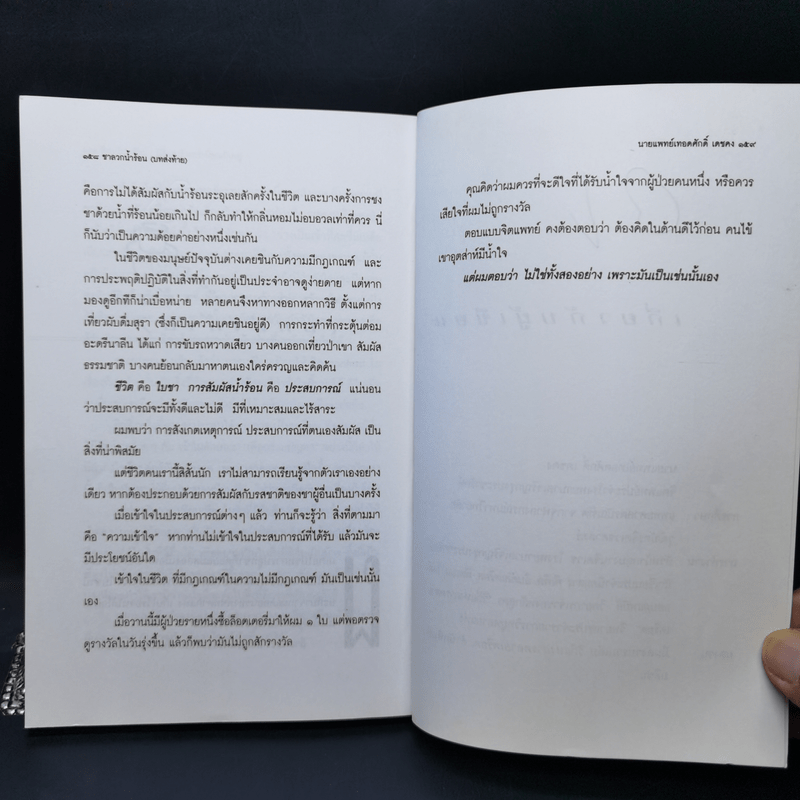 ๑๕๘ ชาลวกน้ำร้อน (บทส่งท้าย)
คือการไม่ได้สัมผัสกับน้ำร้อนระอุเลยสักครั้งในชีวิต และบางครั้งการชง
ชาด้วยน้ำที่ร้อนน้อยเกินไป ก็กลับทำให้กลิ่นหอมไม่อบอวลเท่าที่ควร นี่
ก็นับว่าเป็นความด้อยค่าอย่างหนึ่งเช่นกัน
ในชีวิตของมนุษย์ปัจจุบันต่างเคยชินกับความมีกฎเกณฑ์ และ
การประพฤติปฏิบัติในสิ่งที่ทำกันอยู่เป็นประจำอาจดูง่ายดาย แต่หาก
มองดูอีกทีก็น่าเบื่อหน่าย หลายคนจึงหาทางออกหลากวิธี ตั้งแต่การ
เที่ยวผับดื่มสุรา (ซึ่งก็เป็นความเคยชินอยู่ดี) การกระทำที่กระตุ้นต่อม
อะดรีนาลีน ได้แก่ การขับรถหวาดเสียว บางคนออกเที่ยวป่าเขา สัมผัส
ธรรมชาติ บางคนย้อนกลับมาหาตนเองใคร่ครวญและคิดค้น
ชีวิต คือ ใบชา การสัมผัสน้ำร้อน คือ ประสบการณ์ แน่นอน
ว่าประสบการณ์จะมีทั้งดีและไม่ดี มีที่เหมาะสมและไร้สาระ
ผมพบว่า การสังเกตเหตุการณ์ ประสบการณ์ที่ตนเองสัมผัส เป็น
สิ่งที่น่าพิสมัย
แต่ชีวิตคนเรานี้สิสั้นนัก เราไม่สามารถเรียนรู้จากตัวเราเองอย่าง
เดียว หากต้องประกอบด้วยการสัมผัสกับรสชาติของชาผู้อื่นเป็นบางครั้ง
เมื่อเข้าใจในประสบการณ์ต่างๆ แล้ว ท่านก็จะรู้ว่า สิ่งที่ตามมา
คือ "ความเข้าใจ" หากท่านไม่เข้าใจในประสบการณ์ที่ได้รับ แล้วมันจะ
มีประโยชน์อันใด
เข้าใจในชีวิต ที่มีกฎเกณฑ์ในความไม่มีกฎเกณฑ์ มันเป็นเช่นนั้น
เอง
เมื่อวานนี้มีผู้ป่วยรายหนึ่งซื้อล็อตเตอรี่มาให้ผม ๑ ใบ แต่พอตรวจ
ดูรางวัลในวันรุ่งขึ้น แล้วก็พบว่ามันไม่ถูกสักรางวัล
นายแพทย์เทอดศักดิ์ เดชคง ๑๕๙
คุณคิดว่าผมควรที่จะดีใจที่ได้รับน้ำใจจากผู้ป่วยคนหนึ่ง หรือควร
เสียใจที่ผมไม่ถูกรางวัล
ตอบแบบจิตแพทย์ คงต้องตอบว่า ต้องคิดในด้านดีไว้ก่อน คนไข้
เขาอุตส่าห์มีน้ำใจ
แต่ผมตอบว่า ไม่ใช่ทั้งสองอย่าง เพราะมันเป็นเช่นนั้นเอง